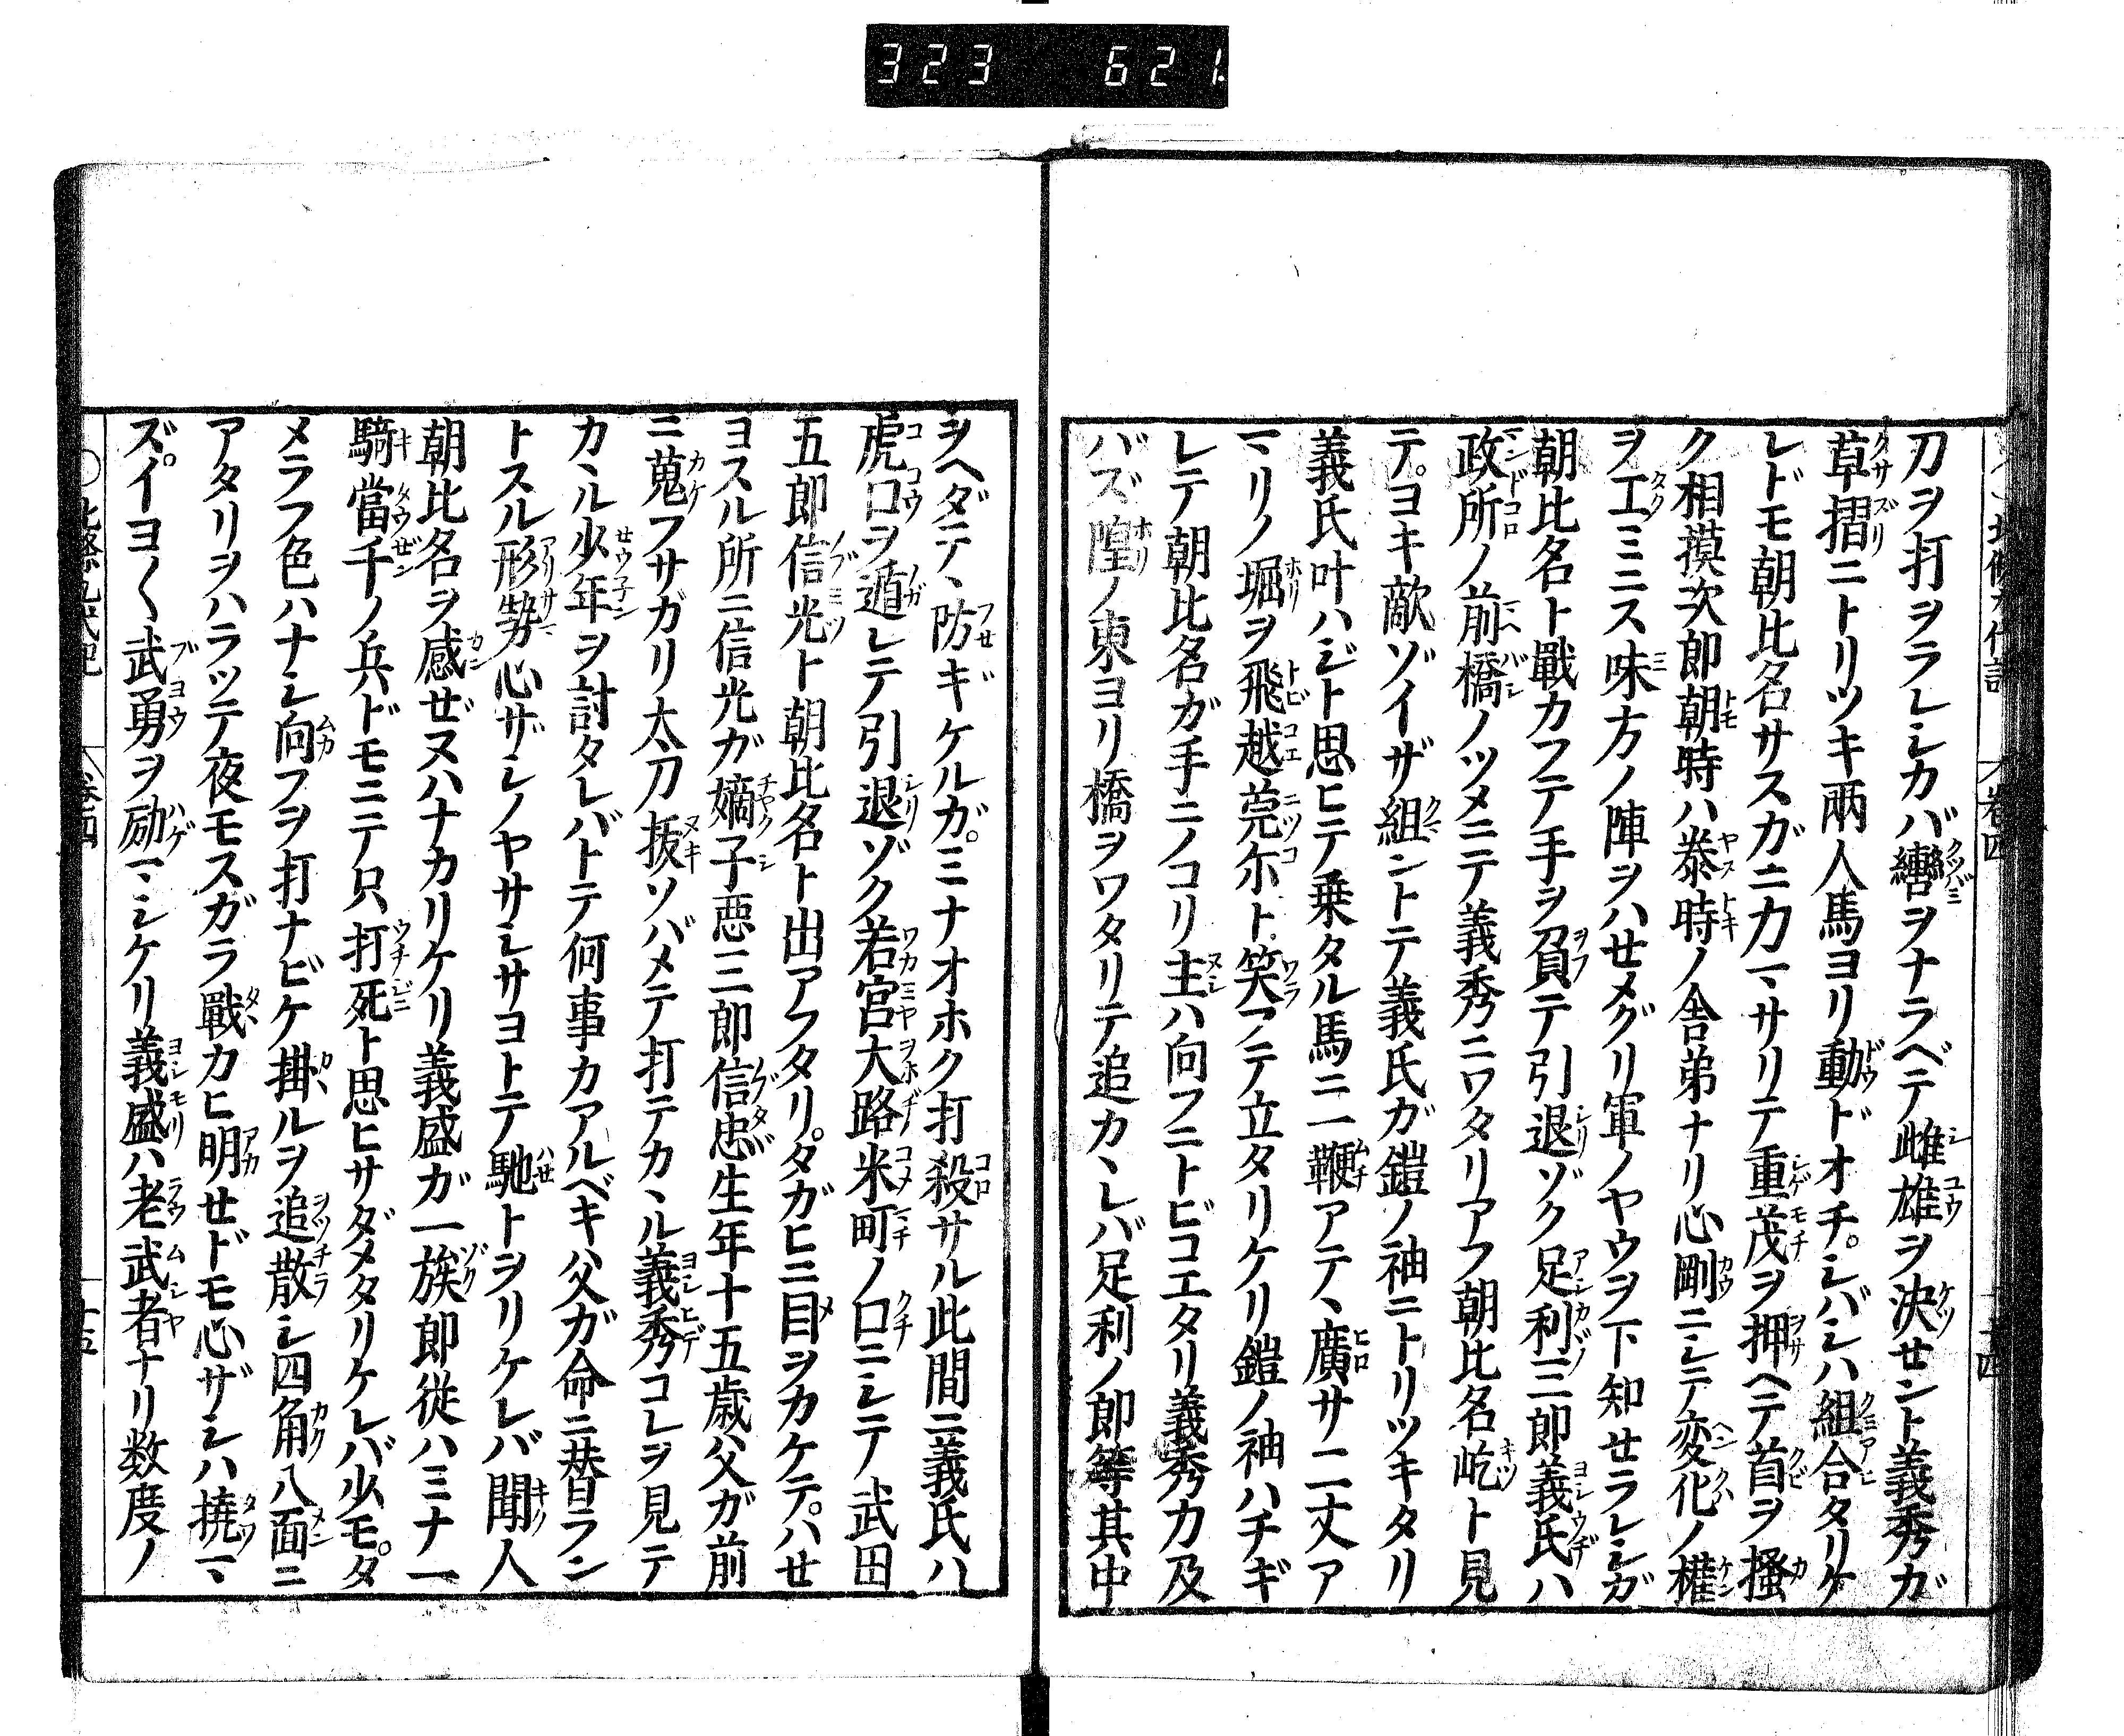 323 621
刀ヲ打ヲラレシカバ轡ヲナラベテ雌雄ヲ決セント義秀ガ
草摺ニトリツキ兩人馬ヨリ動ドオチ。シバシハ組合タリケ
レドモ朝比名サスガニ力マサリテ重茂ヲ押ヘテ首ヲ掻
ク相摸次郎朝時ハ泰時ノ舎弟ナリ心剛ニシテ変化ノ權
ヲ工ミニス味方ノ陣ヲハセメグリ軍ノヤウヲ下知セラレシガ
朝比名ト戰カフテ手ヲ負テ引退ゾク足利三郎義氏ハ
政所ノ前橋ノツメニテ義秀ニワタリアフ朝比名屹ト見
テ。ヨキ敵ゾイザ組ントテ義氏ガ鎧ノ袖ニトリツキタリ
義氏叶ハジト思ヒテ乗タル馬ニ一鞭アテヽ廣サ二丈ア
マリノ堀ヲ飛越莞尓ト笑フテ立タリケリ鎧ノ袖ハチギ
レテ朝比名ガ手ニノコリ主ハ向フニトビコエタリ義秀力及
バズ隍ノ東ヨリ橋ヲワタリテ追カヽレバ足利ノ郎等其中
ヲヘダテヽ防ギケルガ。ミナオホク打殺サル此間ニ義氏ハ
虎口ヲ遁レテ引退ゾク若宮大路米町ノ口ニシテ武田
五郎信光ト朝比名ト出アフタリ。タガヒニ目ヲカケテ。ハセ
ヨスル所ニ信光ガ嫡子悪三郎信忠生年十五歳父ガ前
ニ蒐フサガリ太刀抜ソバメテ打テカヽル義秀コレヲ見テ
カヽル少年ヲ討タレバトテ何事カアルベキ父ガ命ニ替ラン
トスル形勢心ザシノヤサシサヨトテ馳トヲリケレバ聞人
朝比名ヲ感ゼヌハナカリケリ義盛ガ一族郎従ハミナ一
騎當千ノ兵ドモニテ只打死ト思ヒサダメタリケレバ少モ。タ
メラフ色ハナシ向フヲ打ナビケ掛ルヲ追散シ四角八面ニ
アタリヲハラッテ夜モスガラ戰カヒ明セドモ心ザシハ撓マ
ズ。イヨ〱武勇ヲ励マシケリ義盛ハ老武者ナリ数度ノ